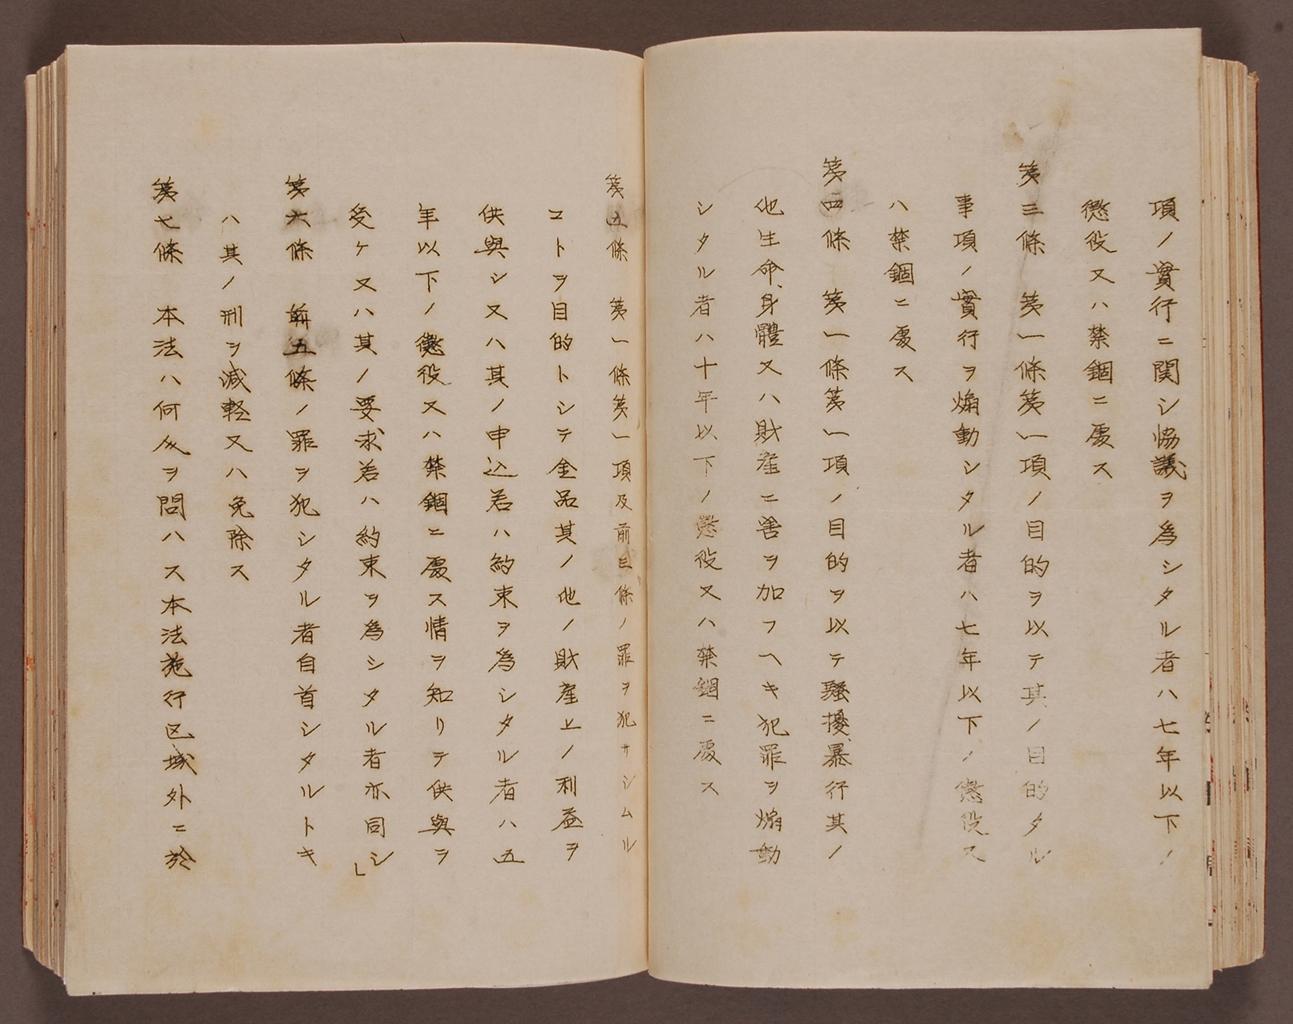 項ノ實行ニ関シ協議ヲ為シタル者ハ七年以下ノ
懲役又ハ禁錮ニ處ス
第三條　第一條第一項ノ目的ヲ以テ其ノ目的タル
事項ノ實行ヲ煽動シタル者ハ七年以下ノ懲役又
ハ禁錮ニ處ス
第四條　第一條第一項ノ目的ヲ以テ騒擾、暴行其ノ
他生命、身體又ハ財産ニ害ヲ加フヘキ犯罪ヲ煽動
シタル者ハ十年以下ノ懲役又ハ禁錮ニ處ス
第五條　第一條第一項及前三條ノ罪ヲ犯サシムル
コトヲ目的トシテ金品其ノ他ノ財産上ノ利益ヲ
供與シ又ハ其ノ申込若ハ約束ヲ為シタル者ハ五
年以下ノ懲役又ハ禁錮ニ處ス情ヲ知リテ供與ヲ
受ケ又ハ其ノ要求若ハ約束ヲ為シタル者亦同シ」
第六條　前五條ノ罪ヲ犯シタル者自首シタルトキ
ハ其ノ刑ヲ減軽又ハ免除ス
第七條　本法ハ何人ヲ問ハス本法施行区域外ニ於